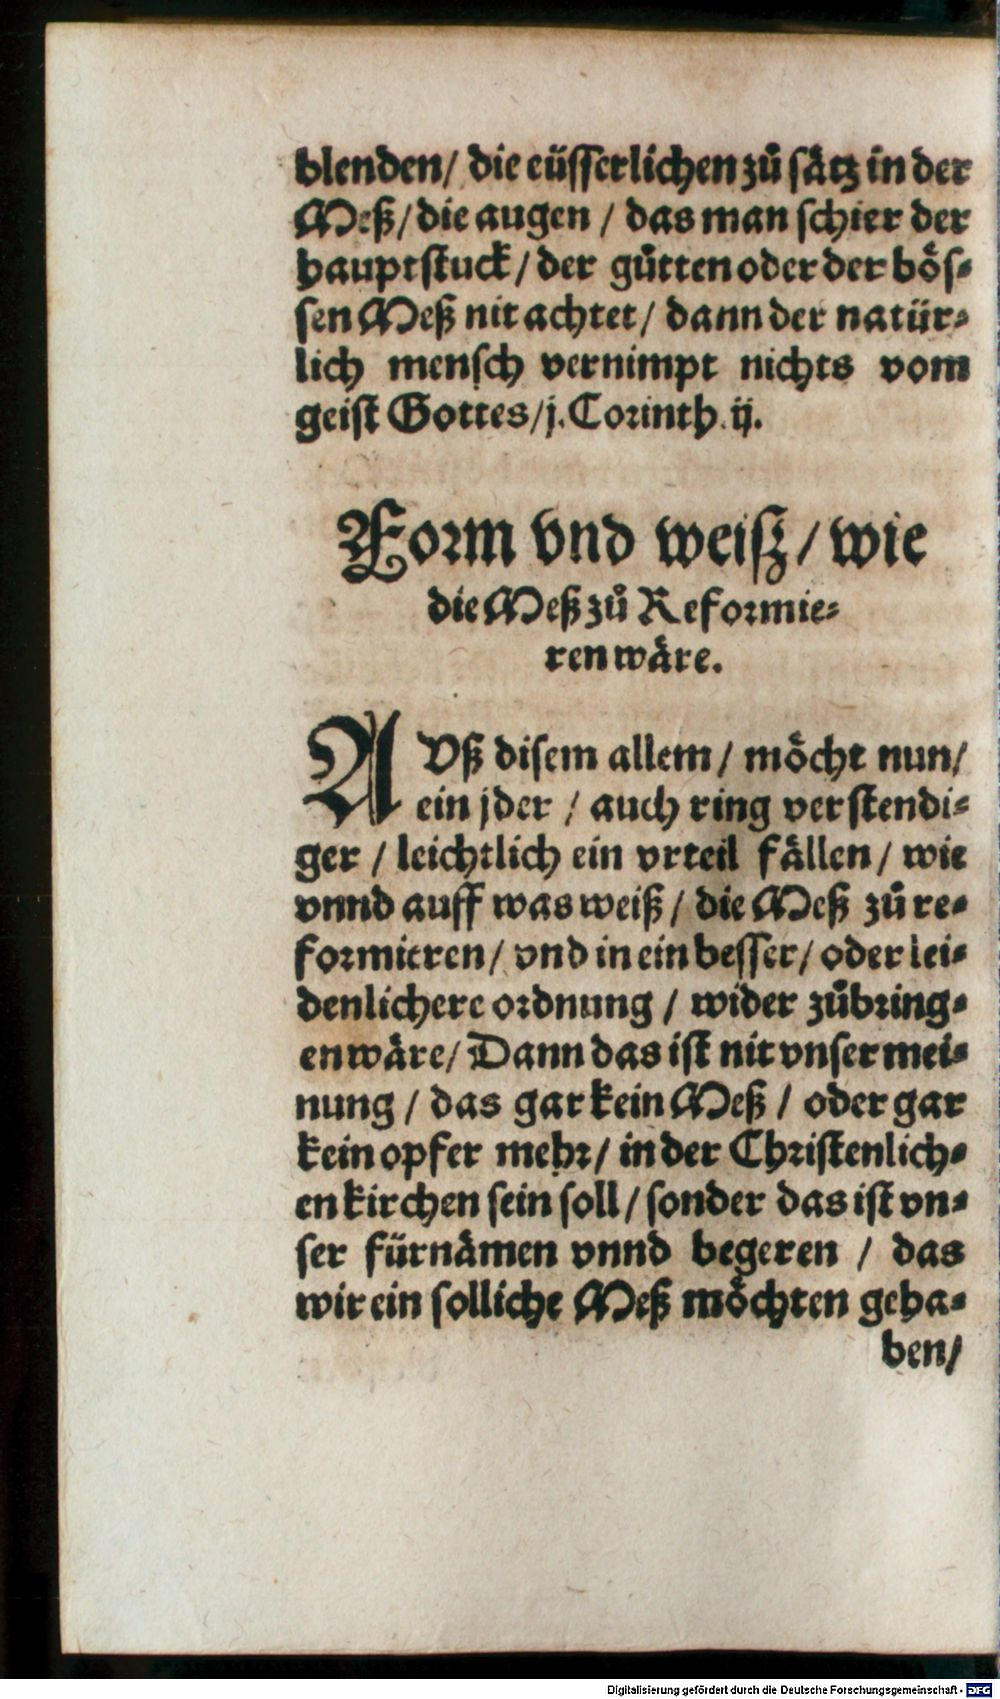 blenden/ die eüsserlichen zů sätz in der
Meß/ die augen / das man schier der
hauptstuck/ der gůtten oder der bös-
sen Meß nit achtet/ dann der natür-
lich mensch vernimpt nichts vom
geist Gottes/ j. Corinth. ij.
Form vnd weisz/ wie
die Meß zů Reformie-
ren wäre.
AVß disem allem / möcht nun/
ein jder / auch ring verstendi-
ger / leichtlich ein vrteil fällen/ wie
vnnd auff was weiß / die Meß zů re-
formieren/ vnd in ein besser/ oder lei-
denlichere ordnung / wider zůbring-
en wäre/ Dann das ist nit vnser mei-
nung / das gar kein Meß / oder gar
kein opfer mehr/ in der Christenlich-
en kirchen sein soll/ sonder das ist vn-
ser fürnämen vnnd begeren / das
wir ein solliche Meß möchten geha-
ben/
Digitalisierung gefördert durch die Deutsche Forschungsgemeinschaft - DFG